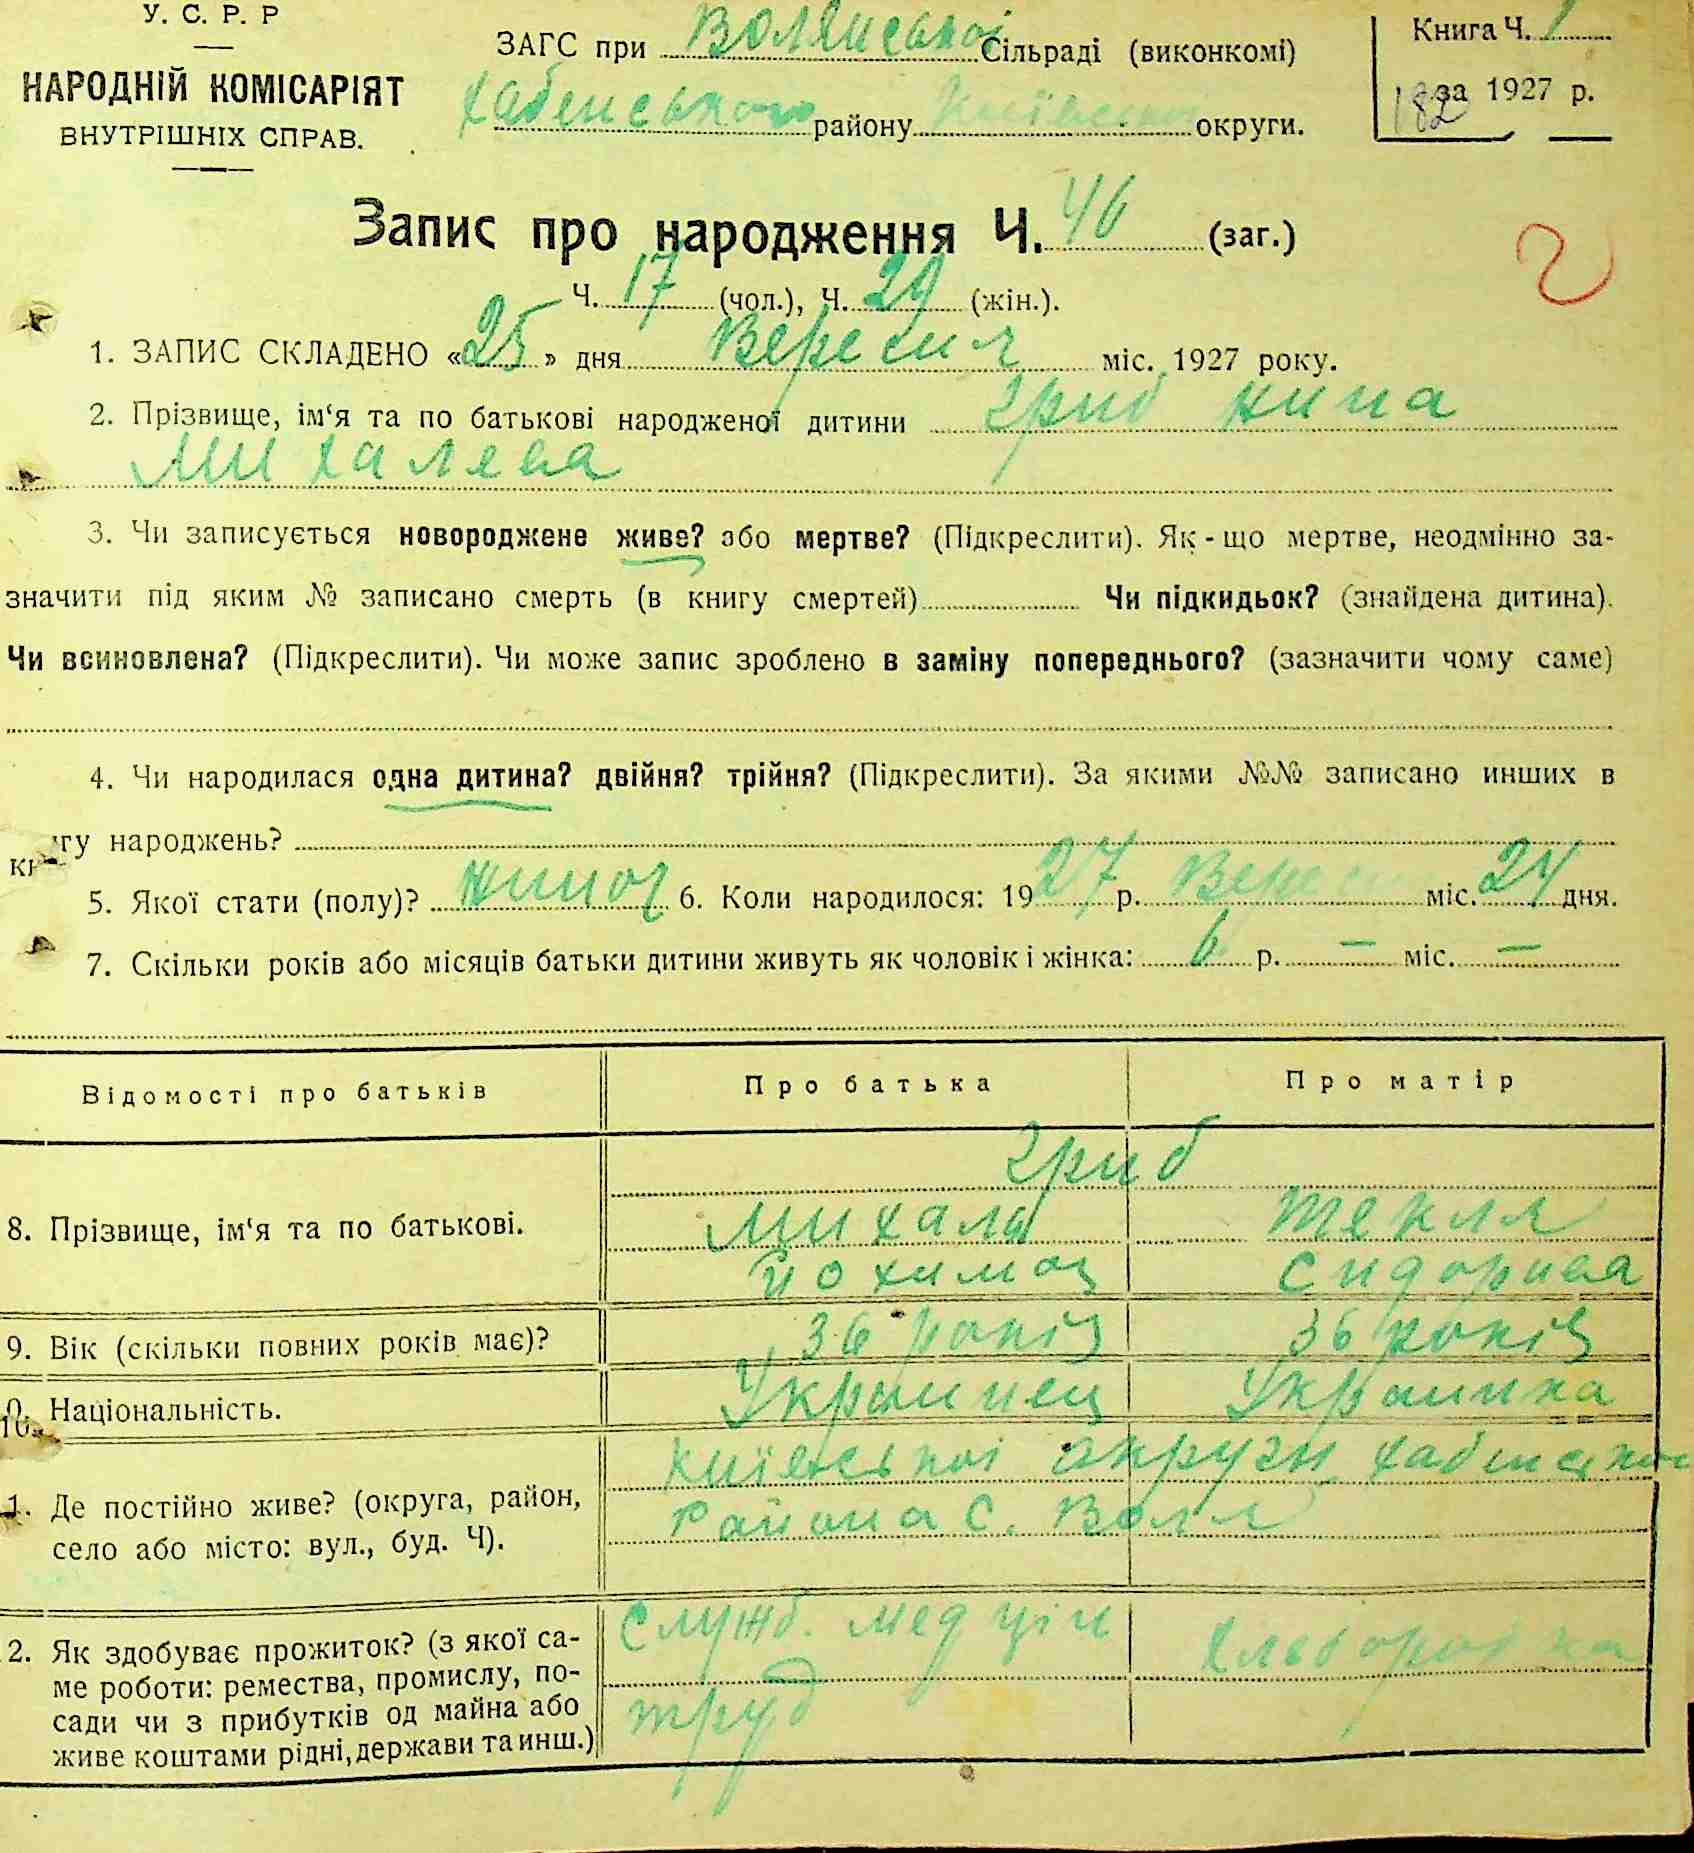 У. С. Р. Р
НАРОДНІЙ КОМІСАРІЯТ
ВНУТРІШНІХ СПРАВ.
ЗАГС при Волянської Сільраді (виконкомі)
Хабенського району Київської округи.
Книга Ч. 1
за 1927 р.
182
Запис про народження Ч. 46 (заг.)
Ч. 17 (чол.), Ч. 29 (жін.).
1. ЗАПИС СКЛАДЕНО «25» дня Вересня міс. 1927 року.
2. Прізвище, ім‘я та по батькові народженої дитини Гриб Нина
Михалева
3. Чи записується новороджене живе? або мертве? (Підкреслити). Як-що мертве, неодмінно за-
значити під яким № записано смерть (в книгу смертей) Чи підкидьок? (знайдена дитина).
Чи всиновлена? (Підкреслити). Чи може запис зроблено в заміну попереднього? (зазначити чому саме)
4. Чи народилася одна дитина? двійня? трійня? (Підкреслити). За якими №№ записано инших в
книгу народжень?
5. Якої стати (полу)? 6. Коли народилося: 1927 р. Вересня міс. 24 дня.
7. Скільки років або місяців батьки дитини живуть як чоловік і жінка: 6 р. — міс. —
Відомості про батьків Про батька Про матір
Гриб
8. Прізвище, ім‘я та по батькові. Михала Текля
Йохимов Сидорива
9. Вік (скільки повних років має)? 36 років 36 років
10. Національність. Украинец Украинка
Київської округи Хабенского
11. Де постійно живе? (округа, район, района с. Воля
село або місто: вул., буд. Ч).
12. Як здобуває прожиток? (з якої са- Служб. мед Хлеборобка
ме роботи: ремества, промислу, по-
сади чи з прибутків од майна або труд
живе коштами рідні, держави та инш.)